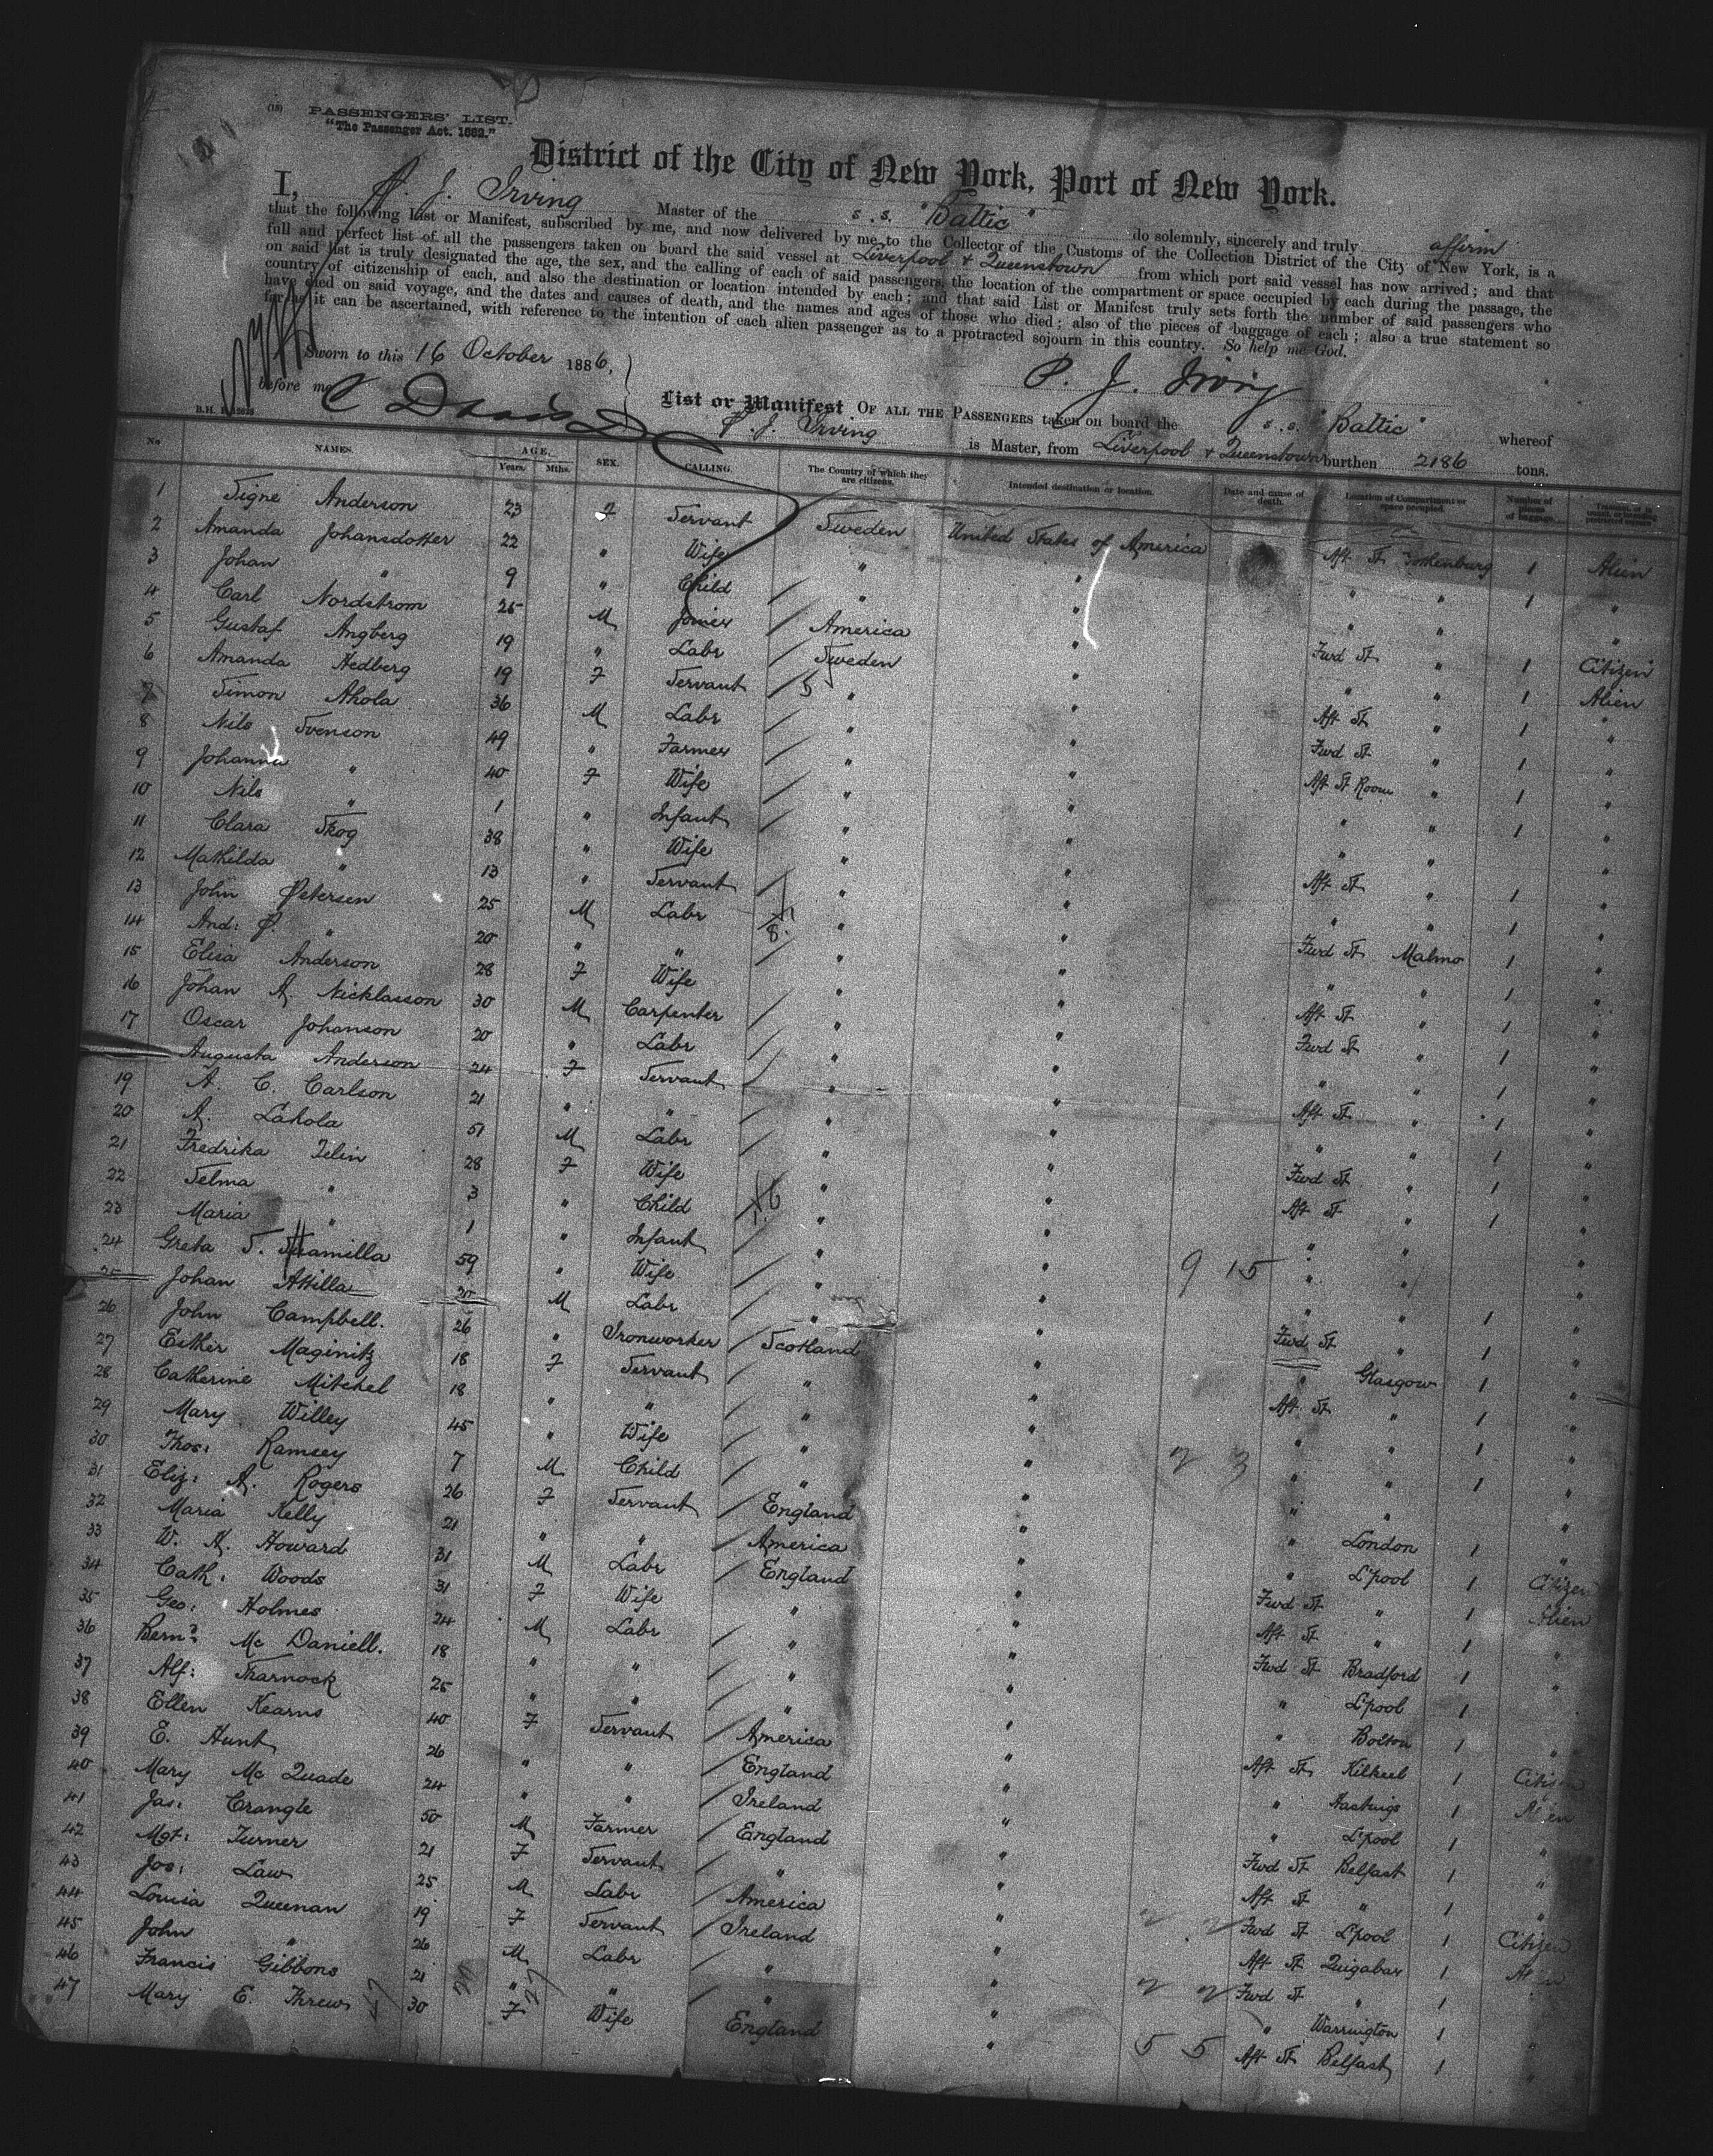 (18) PASSENGERS' LIST.
"The Passenger Act. 1882."
District of the City of New York, Port of New York.
I, P. J. Irving Master of the s.s. "Baltic" do solemnly, sincerely and truly affirm
that the following List or Manifest, subscribed by me, and now delivered by me to the Collector of the Customs of the Collection District of the City of New York, is a
full and perfect list of all the passengers taken on board the said vessel at Liverpool & Queenstown from which port said vessel has now arrived; and that
on said list is truly designated the age, the sex, and the calling of each of said passengers, the location of the compartment or space occupied by each during the passage, the
country of citizenship of each, and also the destination or location intended by each; and that said List or Manifest truly sets forth the number of said passengers who
have died on said voyage, and the dates and causes of death, and the names and ages of those who died; also of the pieces of baggage of each; also a true statement so
far as it can be ascertained, with reference to the intention of each alien passenger as to a protracted sojourn in this country. So help me God.
Sworn to this 16 October 1886,
before me P. J. Irving
List or Manifest OF ALL THE PASSENGERS taken on board the s.s. "Baltic" whereof
P. J. Irving is Master, from Liverpool & Queenstown burthen 2186 tons.
No NAMES. AGE. Years. Mths. SEX. CALLING. The Country of which they are citizens. Intended destination or location. Date and cause of death. Location of Compartment or space occupied. Number of pieces of baggage.
1 Signe Anderson 23 F Servant Sweden United States of America Aft St Gothenburg 1 Alien
2 Amanda Johansdotter 22 " Wife " " " " 1 "
3 Johan " 9 " Child " " " " "
4 Carl Nordstrom 25 M Joiner America " Fwd St " 1 Citizen
5 Gustaf Angberg 19 " Labr Sweden " " " 1 Alien
6 Amanda Hedberg 19 F Servant " " Aft St " 1 "
7 Simon Ahola 36 M Labr " " Fwd St " 1 "
8 Nils Svenson 49 " Farmer " " Aft St Room " 1 "
9 Johanna " 40 F Wife " " " " 1 "
10 Nils " 1 " Infant " " " " "
11 Clara Skog 38 " Wife " " Aft St " 1 "
12 Mathilda " 13 " Servant " " " " 1 "
13 John Petersen 25 M Labr " " Fwd St Malmo 1 "
14 And: P. " 20 " " " " " " 1 "
15 Elisa Anderson 28 F Wife " " Aft St " 1 "
16 Johan A. Nicklasson 30 M Carpenter " " Fwd St " 1 "
17 Oscar Johanson 20 " Labr " " " " 1 "
Augusta Anderson 24 F Servant " " Aft St " 1 "
19 A. C. Carlson 21 " " " " " " 1 "
20 A. Lahola 51 M Labr " " Fwd St " 1 "
21 Fredrika Zelin 28 F Wife " " Aft St " 1 "
22 Selma " 3 " Child " " " " "
23 Maria " 1 " Infant " " " " "
24 Greta S. 59 " Wife " " 9 15 " " 1 "
25 Johan Akilla 20 M Labr " " Fwd St " 1 "
26 John Campbell. 26 " Ironworker Scotland " " Glasgow 1 "
27 Esther Maginitz 18 F Servant " " Aft St " 1 "
28 Catherine Mitchel 18 " " " " " " 1 "
29 Mary Willey 45 " Wife " " " " 1 "
30 Thos: Ramsey 7 M Child " " 2 3 " " "
31 Eliz: A. Rogers 26 F Servant England " " London 1 "
32 Maria Kelly 21 " " America " " L'pool 1 Citizen
33 W. H. Howard 31 M Labr England " Fwd St " 1 Alien
34 Cath: Woods 31 F Wife " " Aft St " 1 "
35 Geo: Holmes 24 M Labr " " Fwd St Bradford 1 "
36 Bernd: Mc Daniell. 18 " " " " " L'pool 1 "
37 Alf: Sharnock 25 " " " " " Bolton 1 "
38 Ellen Kearns 40 F Servant America " Aft St Kilkeel 1 Citizen
39 E. Hunt 26 " " England " " Hastings 1 Alien
40 Mary Mc Quade 24 " " Ireland " " L'pool 1 "
41 Jas: Crangle 50 M Farmer England " Fwd St Belfast 1 "
42 Mgt: Turner 21 F Servant " " Aft St " 1 "
43 Jos: Law 25 M Labr America " Fwd St L'pool 1 Citizen
44 Louisa Queenan 19 F Servant Ireland " Aft St 1 Alien
45 John " 26 M Labr " " Fwd St " 1 "
46 Francis Gibbons 21 " " " " " Warrington 1 "
47 Mary E. Threw 30 F Wife England " 5 5 Aft St Belfast 1 "